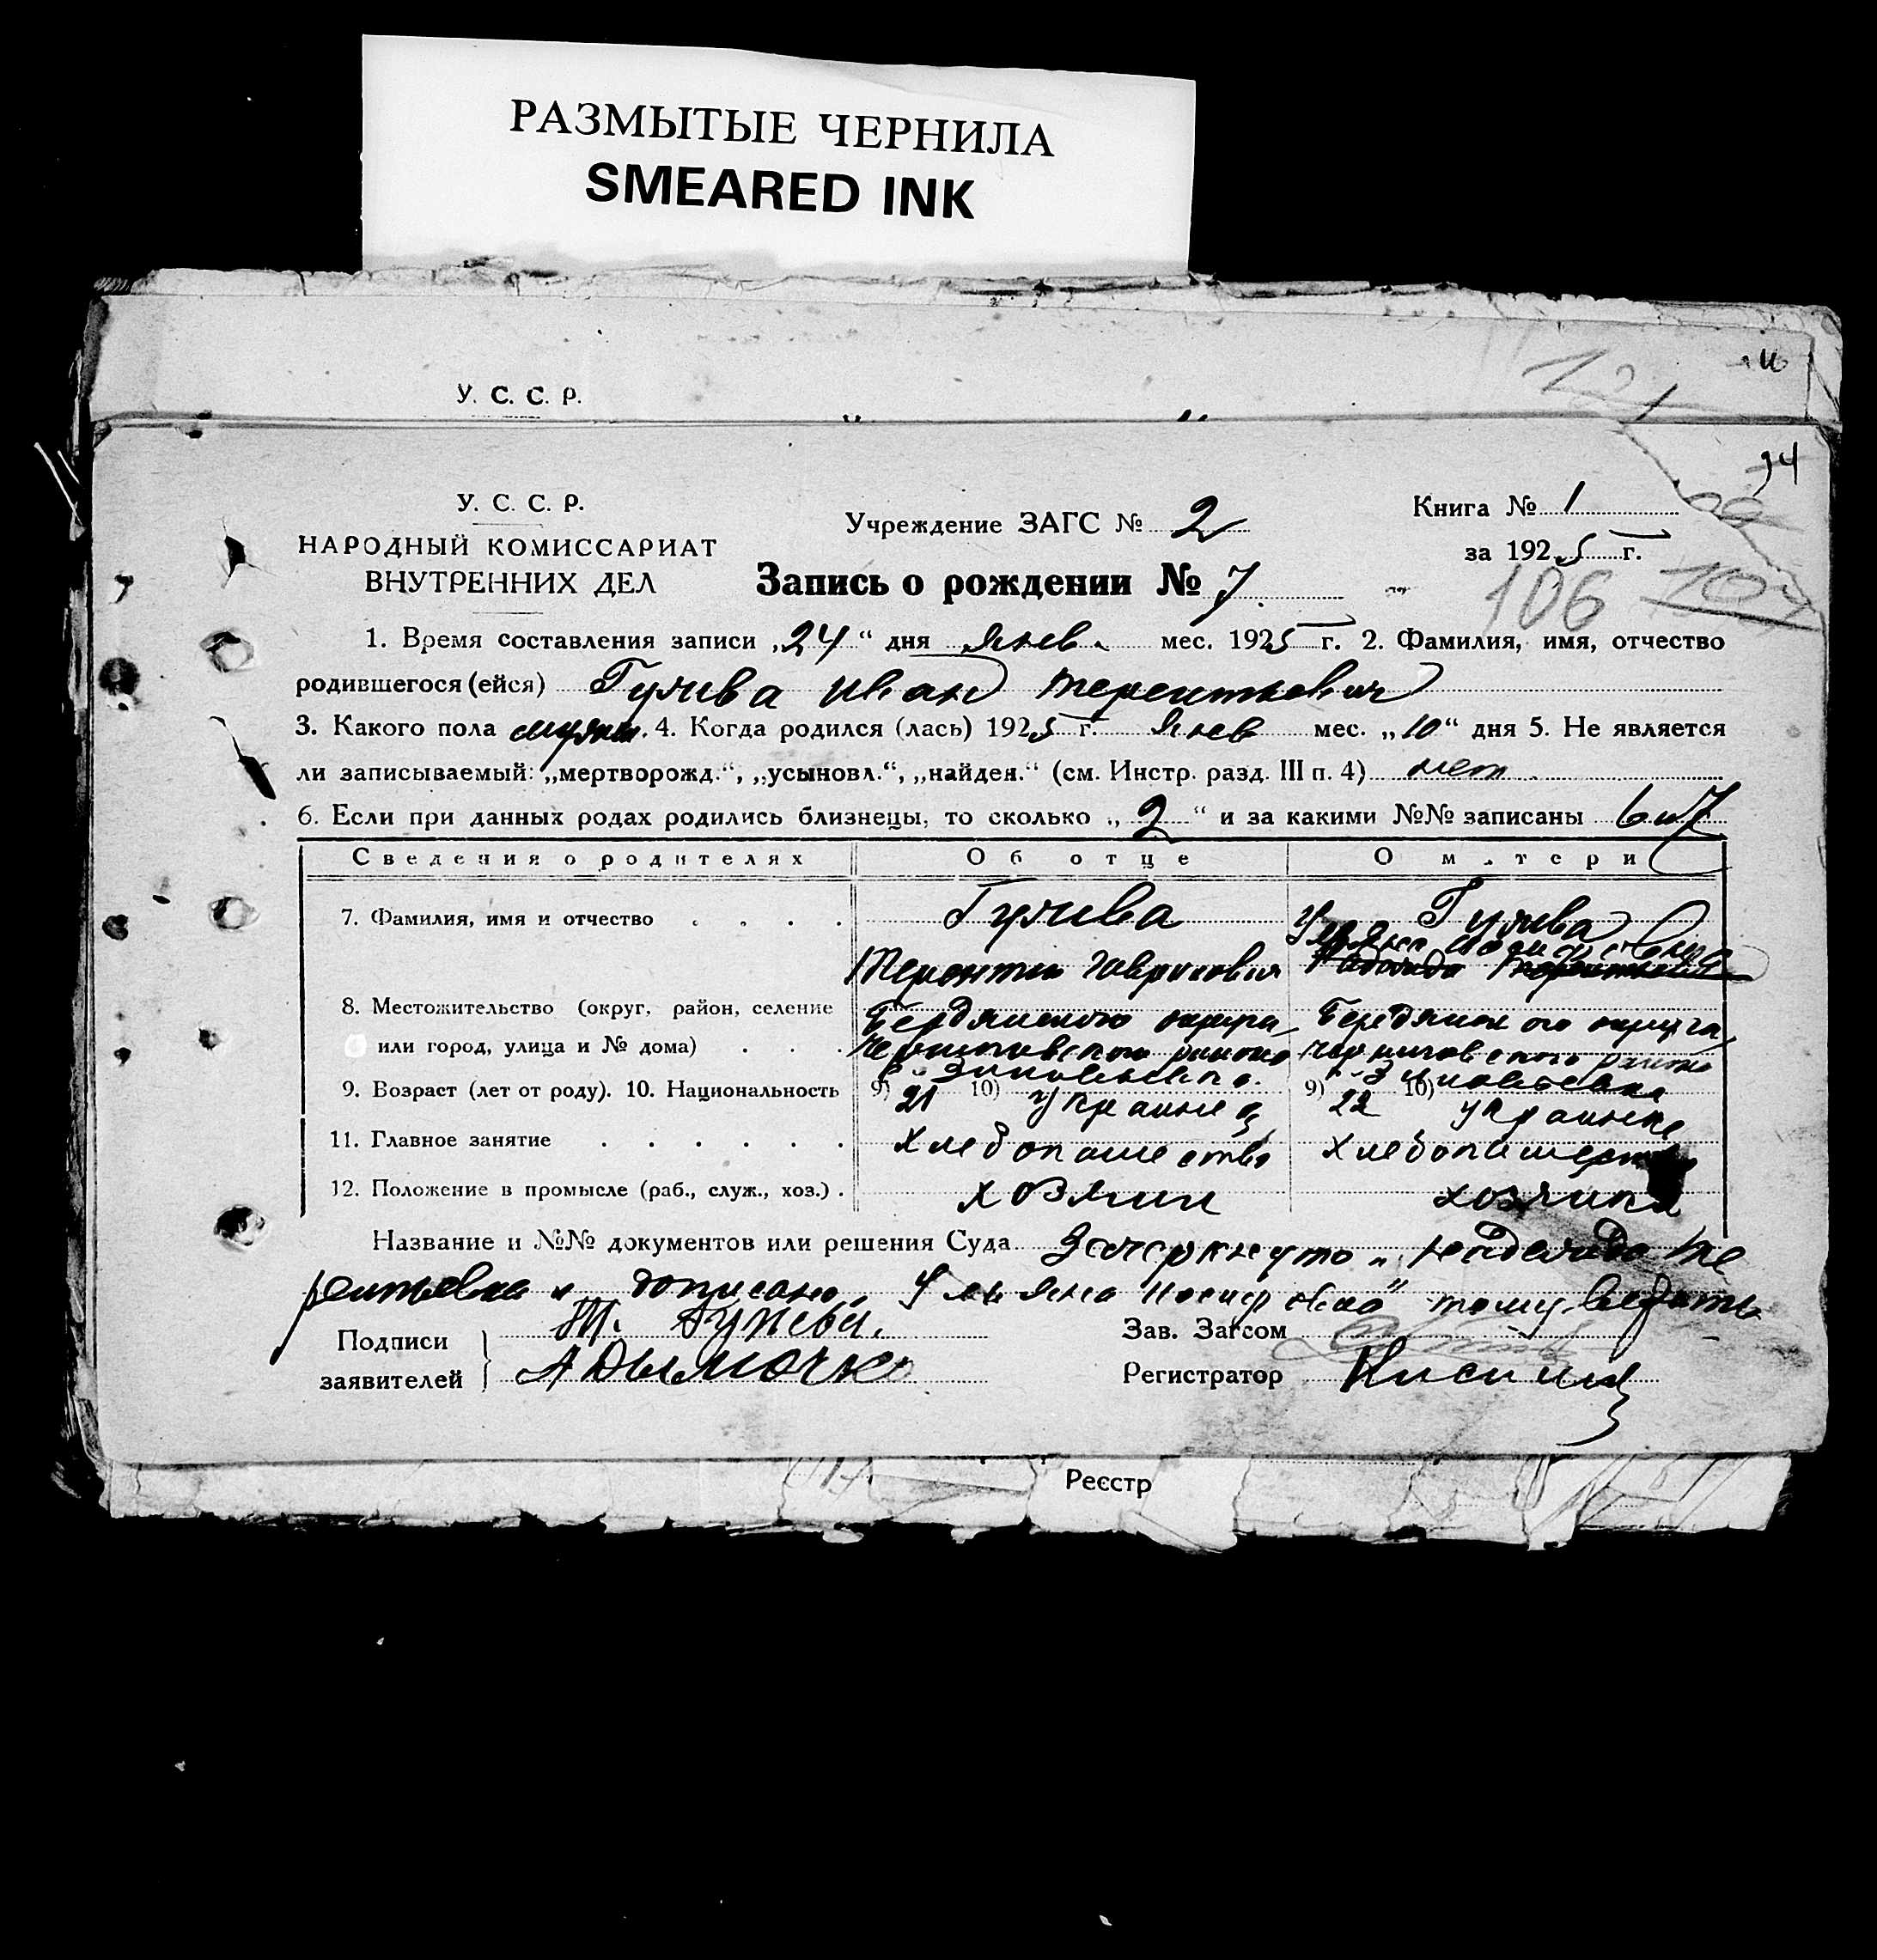 РАЗМЫТЫЕ ЧЕРНИЛА
SMEARED INK
У. С. С. Р.
94
У. С. С. Р.
НАРОДНЫЙ КОМИССАРИАТ
ВНУТРЕННИХ ДЕЛ
Учреждение ЗАГС № 2
Книга № 1
за 1925 г.
Запись о рождении № 7.
106 107
1. Время составления записи „24“ дня Янев. мес. 1925 г. 2. Фамилия, имя, отчество
родившегося (ейся) Иван Терентьевич
3. Какого пола мужск. 4. Когда родился (лась) 1925 г. Янев мес. „10“ дня 5. Не является
ли записываемый: „мертворожд.“, „усыновл.“, „найден.“ (см. Инстр. разд. III п. 4) нет
6. Если при данных родах родились близнецы, то сколько „2“ и за какими №№ записаны 6 и 7
Сведения о родителях Об отце О матери
7. Фамилия, имя и отчество
Ульяна
8. Местожительство (округ, район, селение Бердянского округа Бердянского округа
или город, улица и № дома) района Черниговского района
9. Возраст (лет от роду). 10. Национальность 9) 21 10) Украинец 9) 22 10) украинка
11. Главное занятие хлебопашество хлебопашество
12. Положение в промысле (раб., служ., хоз.) хозяин хозяйка
Название и №№ документов или решения Суда Зачеркнуто „Надежда Те
рентьевна и дописано „Ульяна
Подписи
заявителей
Зав. Загсом
Регистратор
Реєстр